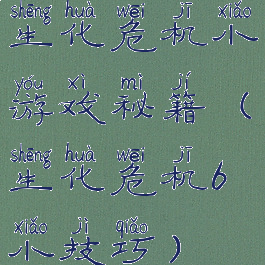 shēng huà wēi jī xiǎo
生化危机小
yóu xì mì jí
游戏秘籍（
shēng huà wēi jī
生化危机6
xiǎo jì qiǎo
小技巧）